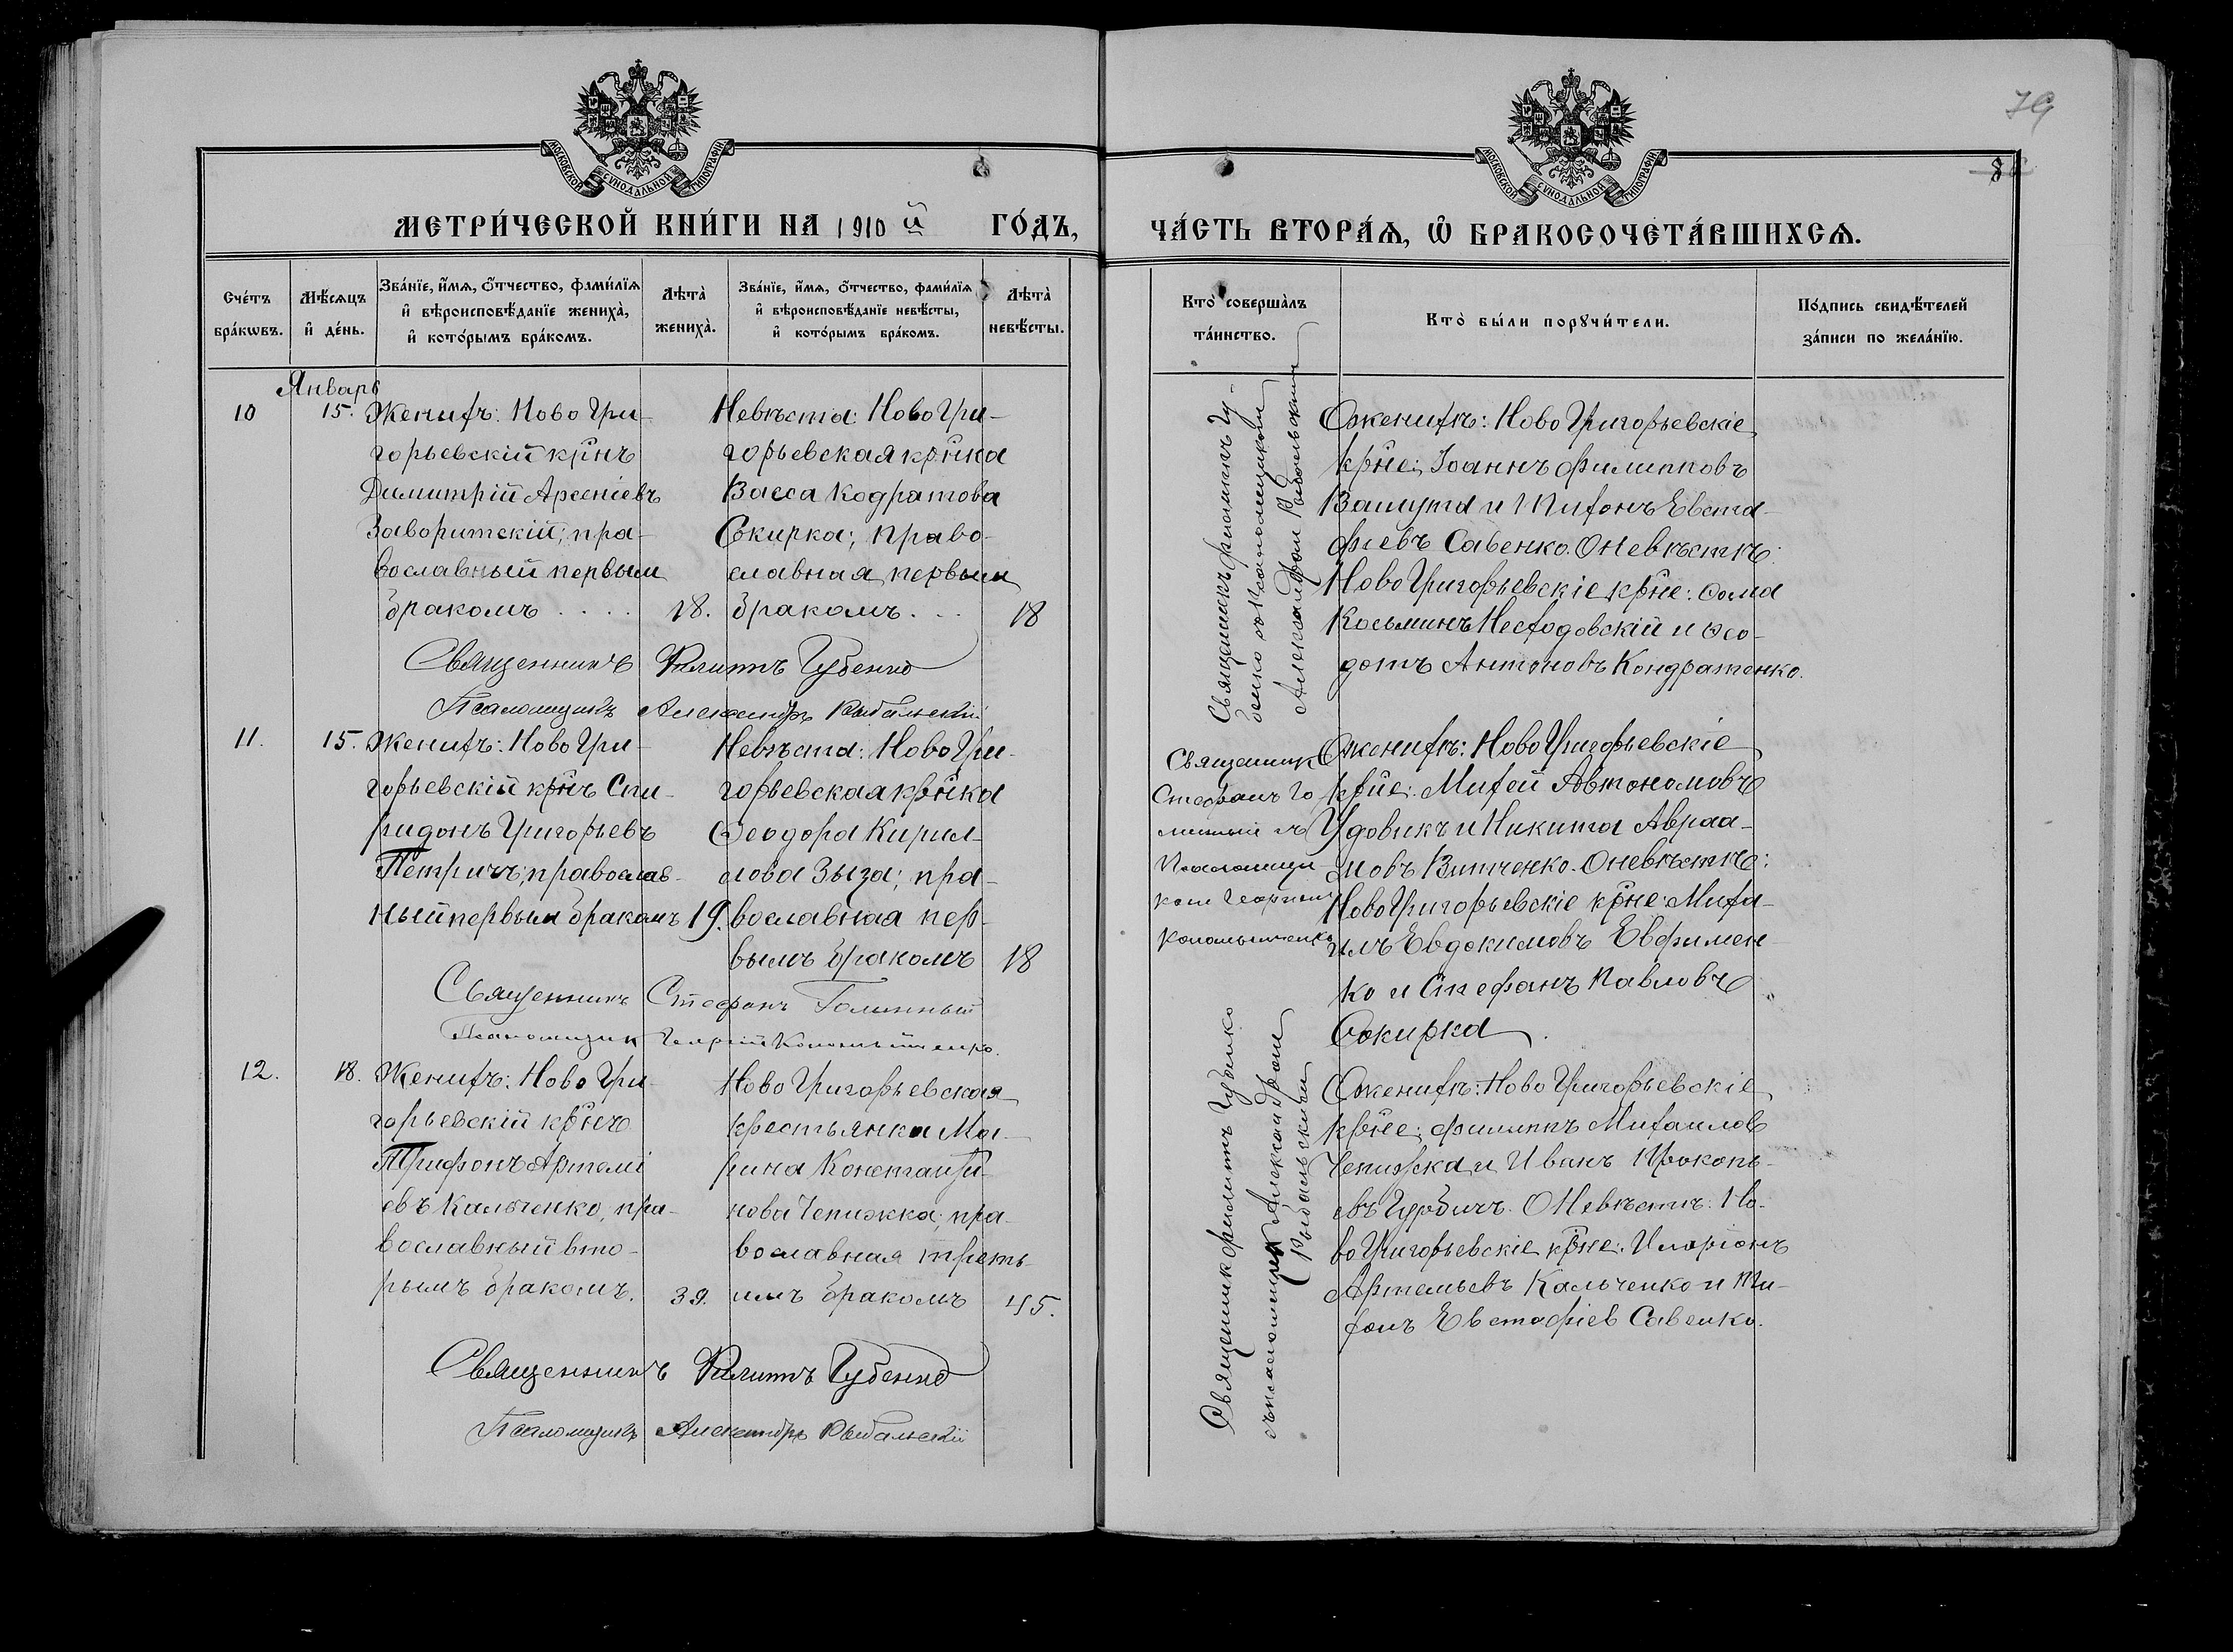 МОСКОВСКОЙ СѴНОДАЛЬНОЙ ТИПОГРАФІИ.
МЕТРИ́ЧЕСКОЙ КНИ́ГИ НА 1910 й ГО́ДЪ,
Сче́тъ бра́кωвъ.
Мѣ́сяцъ и҆ де́нь.
Зва́нїе, и҆́мѧ, ѻ҆́тчество, фами́лїѧ
и҆ вѣроисповѣ́данїе жениха̀,
и҆ кото́рымъ бра́комъ.
Лѣта̀ жениха̀.
Зва́нїе, и҆́мѧ, ѻ҆́тчество, фами́лїѧ
и҆ вѣроисповѣ́данїе невѣ́сты,
и҆ кото́рымъ бра́комъ.
Лѣта̀ невѣ́сты.
Январь
10
15.
Женихъ: Ново Гри-
горьевскій кр̃нъ
Димитрій Арсеніевъ
Заворитскій; пра-
вославный первым
бракомъ . . . .
18.
Невѣста: Ново Гри-
горьевская кр̃нка
Васса Кодратова
Сокирка; право-
славная, первым
бракомъ. . .
18
Священникъ Филиппъ Губенко
Псаломщикъ Александръ Рыбальскій
11.
15.
Женихъ: Ново Гри-
горьевскій кр̃нъ Спи-
ридонъ Григорьевъ
Петричъ; православ-
ный первым бракомъ
19.
Невѣста: Ново Гри-
горьевская кр̃нка
Ѳеодора Кирил-
лова Зыза; пра-
вославная пер-
вымъ бракомъ
18
Священникъ Стефанъ Голинный
Псаломщик Георгій Коломыйченко.
12.
18.
Женихъ: Ново Гри-
горьевскій кр̃нъ
Трифонъ Артемі
евъ Кальченко, пра-
вославный вто-
рымъ бракомъ.
39.
Ново Григорьевская
крестьянка Ма-
рина Константи-
нова Чепижка; пра-
вославная треть-
имъ бракомъ
45.
Священникъ Филиппъ Губенко
Псаломщикъ Александръ Рыбальскій
79
8
МОСКОВСКОЙ СѴНОДАЛЬНОЙ ТИПОГРАФІИ.
ЧА́СТЬ ВТОРА́Ѧ, Ѽ БРАКОСОЧЕТА́ВШИХСѦ.
Кто̀ соверша̀лъ
та́инство.
Кто̀ бы́ли порꙋчи́тели.
По́дпись свидѣ́телей
за́писи по жела́нїю.
Священникъ Филиппъ Гу-
бенко съ псаломщиком
Александром Рыбальским
О женихѣ: Ново Григорьевскіе
кр̃не; Іоаннъ Филипповъ
Вашута и Тифонъ Евста-
фіевъ Савенко. О невѣстѣ:
Ново Григорьевскіе кр̃не: Ѳома
Косьминъ Несходовскій и Ѳео-
дотъ Антоновъ Кондратенко.
Священник
Стефанъ Го
линный съ
Псаломщи-
ком Георгіем
Коломыйченко
О женихѣ: Ново Григорьевскіе
кр̃не: Михей Автономовъ
Удовикъ и Никита Авраа-
мовъ Витченко. О невѣстѣ:
Ново Григорьевскіе кр̃не: Миха-
илъ Евдокимовъ Евфимен-
ко и Стефанъ Павловъ
Сокирка.
Священник Филиппъ Губенко
съ псаломщикомъ Александром
Рыбальским
О женихѣ: Ново Григорьевскіе
кр̃не; Филиппъ Михаилов
Чепижка и Иванъ Прокопь-
евъ Гурбичъ. О Невѣстѣ: Но-
во Григорьевскіе кр̃не: Иларіонъ
Артемьевъ Кальченко и Ти-
фонъ Евстафіев Савенко.